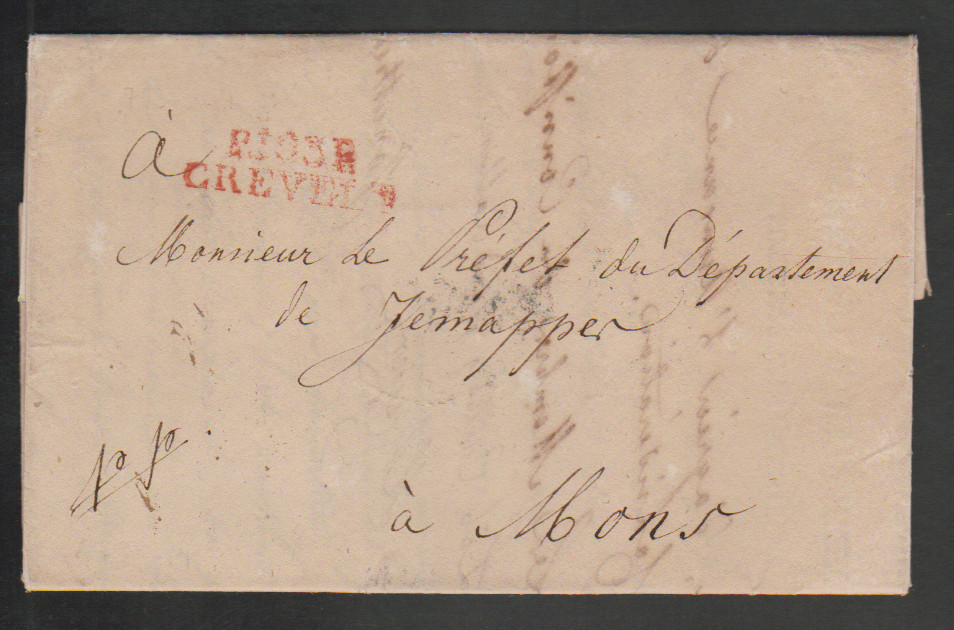 à
P103P
CREVELT
Monsieur Le Préfet du Département
de Jemappes
pp
à Mons